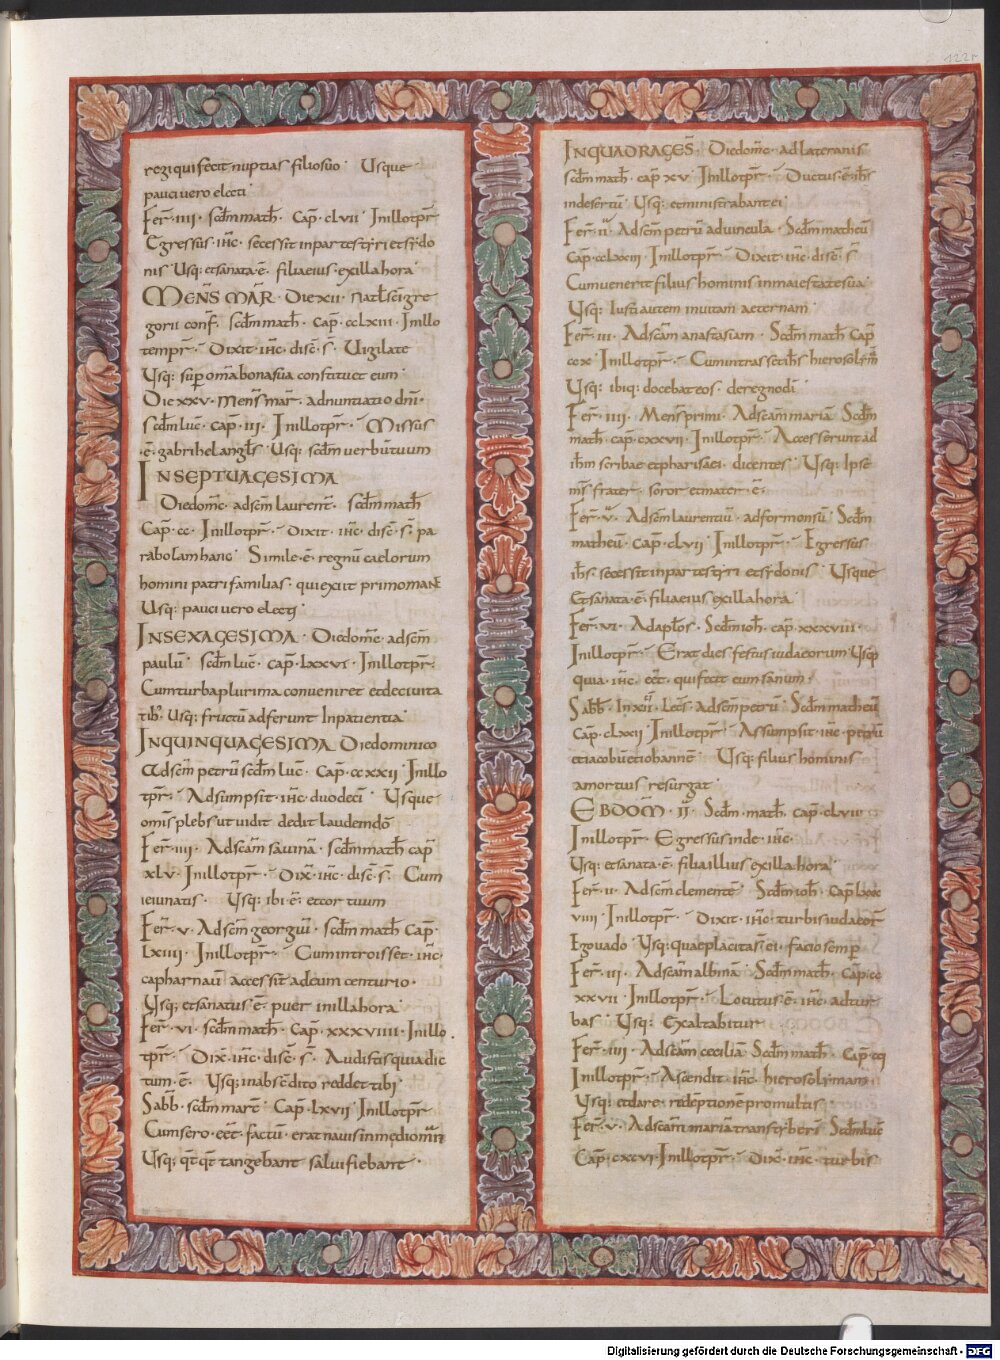 122r
regi qui fecit nuptias filio suo · Usque
pauci uero electi ·
Fer̄ · IIII · scd̄m math̄ · Cap̄ · clvii · In illo tpr̄
Egressus · ih̄c · secessit in partes tyri et sydo
nis Usq; et sanata · ē · filia eius ex illa hora ·
MENS̄ MAR̄ · Die xii · Natl̄ sc̄i gre
gorii conf̄ · scd̄m math̄ · Cap̄ · cclxiii · In illo
tempr̄ · Dixit · ih̄c · disc̄ · s̄ · Uigilate
Usq; sup om̄a bona sua constituet eum ·
Die xxv · mens̄ mar̄ · adnuntiatio dn̄i ·
scd̄m luc̄ · cap̄ · iii · In illo tpr̄ · Missus
· ē · gabrihel angl̄s Usq; scd̄m uerbū tuum
IN SEPTUAGESIMA
Die dom̄c · ad sc̄m laurent̄ · scd̄m math̄
Cap̄ · cc · In illo tpr̄ · Dixit · ih̄c · disc̄ · s̄ · pa
rabolam hanc · Simile · ē · regnū caelorum
homini patri familias · qui exiit primo mane
Usq; pauci uero electi ·
IN SEXAGESIMA · Die dom̄c · ad sc̄m
paulū · scd̄m luc̄ · cap̄ · lxxvi · In illo tpr̄ ·
Cum turba plurima conueniret et de ciuita
tib; Usq; fructū adferunt In patientia ·
IN QUINQUAGESIMA Die dominico
Ad sc̄m petrū scd̄m luc̄ · Cap̄ · ccxxii · In illo
tpr̄ · Adsumpsit · ih̄c · duodeci · Usque
omis plebs ut uidit dedit laudem dō ·
Fer̄ · iiii · Ad scām sauinā · scd̄m math̄ cap̄
xlv · In illo tpr̄ · Dix̄ · ih̄c · disc̄ · s̄ · Cum
ieiunatis · Usq; ibi · ē · et cor tuum
Fer̄ · v · Ad sc̄m georgiū · scd̄m math̄ Cap̄ ·
Lxiii · In illo tpr̄ · Cum introisset · ih̄c ·
capharnaū accessit ad eum centurio ·
Usq; et sanatus · ē · puer in illa hora ·
Fer̄ · vi · scd̄m math̄ · Cap̄ · xxxviiii · In illo ·
tpr̄ · Dix̄ · ih̄c · disc̄ · s̄ · Audistis quia dic
tum · ē · Usq; in abscdito reddet tibi ·
Sabb̄ · scd̄m marc̄ · Cap̄ · lxvii · In illo tpr̄
Cum sero · eēt · factū · erat nauis in medio mari
Usq; qt̄qt̄ tangebant salui fiebant ·
IN QUADRAGES̄ · Die dom̄c · ad lateranis
scd̄m math̄ · cap̄ xv · In illo tpr̄ · Ductus · ē · ih̄s
in desertū Usq; et ministrabant ei ·
Fer̄ · ii · Ad sc̄m petrū ad uincula · Scd̄m matheū
Cap̄ · cclxxiii · In illo tpr̄ · Dixit · ih̄c · disc̄ · s̄
Cum uenerit filius hominis in maiestate sua ·
Usq; Iusti autem in uitam aeternam ·
Fer̄ · iii · Ad scām anastasiam · Scd̄m math̄ Cap̄
ccx · In illo tpr̄ · Cum intrasset ih̄s hierosolimā
Usq; ibiq; docebat eos de regno dī ·
Fer̄ · iiii · Mens̄ primi · Ad scām mariā Scd̄m
math̄ · cap̄ · cxxvii · In illo tpr̄ · Accesserunt ad
ih̄m scribae et pharisaei · dicentes Usq; Ipse
ms̄ frater · soror et mater · ē ·
Fer̄ · v · Ad sc̄m laurentiū · ad formonsū Scd̄m
matheū · Cap̄ · clvii · In illo tpr̄ · Egressus
ih̄s · secessit in partes tyri et sydonis Usque
Et sanata · ē · filia eius ex illa hora ·
Fer̄ · vi · Ad apl̄os · Scd̄m ioh̄ · cap̄ · xxxviii ·
In illo tpr̄ · Erat dies festus iudaeorum Usq;
quia · ih̄c · eēt · qui fecit eum sanum ·
Sabb̄ · In xii · Lec̄t · Ad sc̄m petrū · Scd̄m matheū
Cap̄ · clxxii · In illo tpr̄ · Assumpsit · ih̄c · petrū
et iacobū et iohannē · Usq; filius hominis
a mortuis resurgat ·
EBDOM̄ · II · Scd̄m · math̄ · Cap̄ · clvii ·
In illo tpr̄ · Egressus inde · ih̄c ·
Usq; et sanata · ē · filia illius ex illa hora ·
Fer̄ · ii · Ad sc̄m clementē · Scd̄m ioh̄ · Cap̄ lxxx
viiii · In illo tpr̄ · Dixit · ih̄c · turbis iudaeor̄
Ego uado Usq; quae placita s̄ · ei · facio semp
Fer̄ · iii · Ad scām albinā · Scd̄m math̄ · Cap̄ · cc
xxvii · In illo tpr̄ · Locutus · ē · ih̄c · ad tur
bas · Usq; Exaltabitur
Fer̄ · iiii · Ad scām ceciliā · Scd̄m math̄ · Cap̄ · cci
In illo tpr̄ · Ascendit · ih̄c · hierosolimam
Usq; et dare · redēptionē pro multis ·
Fer̄ · v · Ad scām mariā transtyberī Scd̄m luc̄
Cap̄ · cxcvi · In illo tpr̄ · Dix̄ · ih̄c · turbis
Digitalisierung gefördert durch die Deutsche Forschungsgemeinschaft - DFG